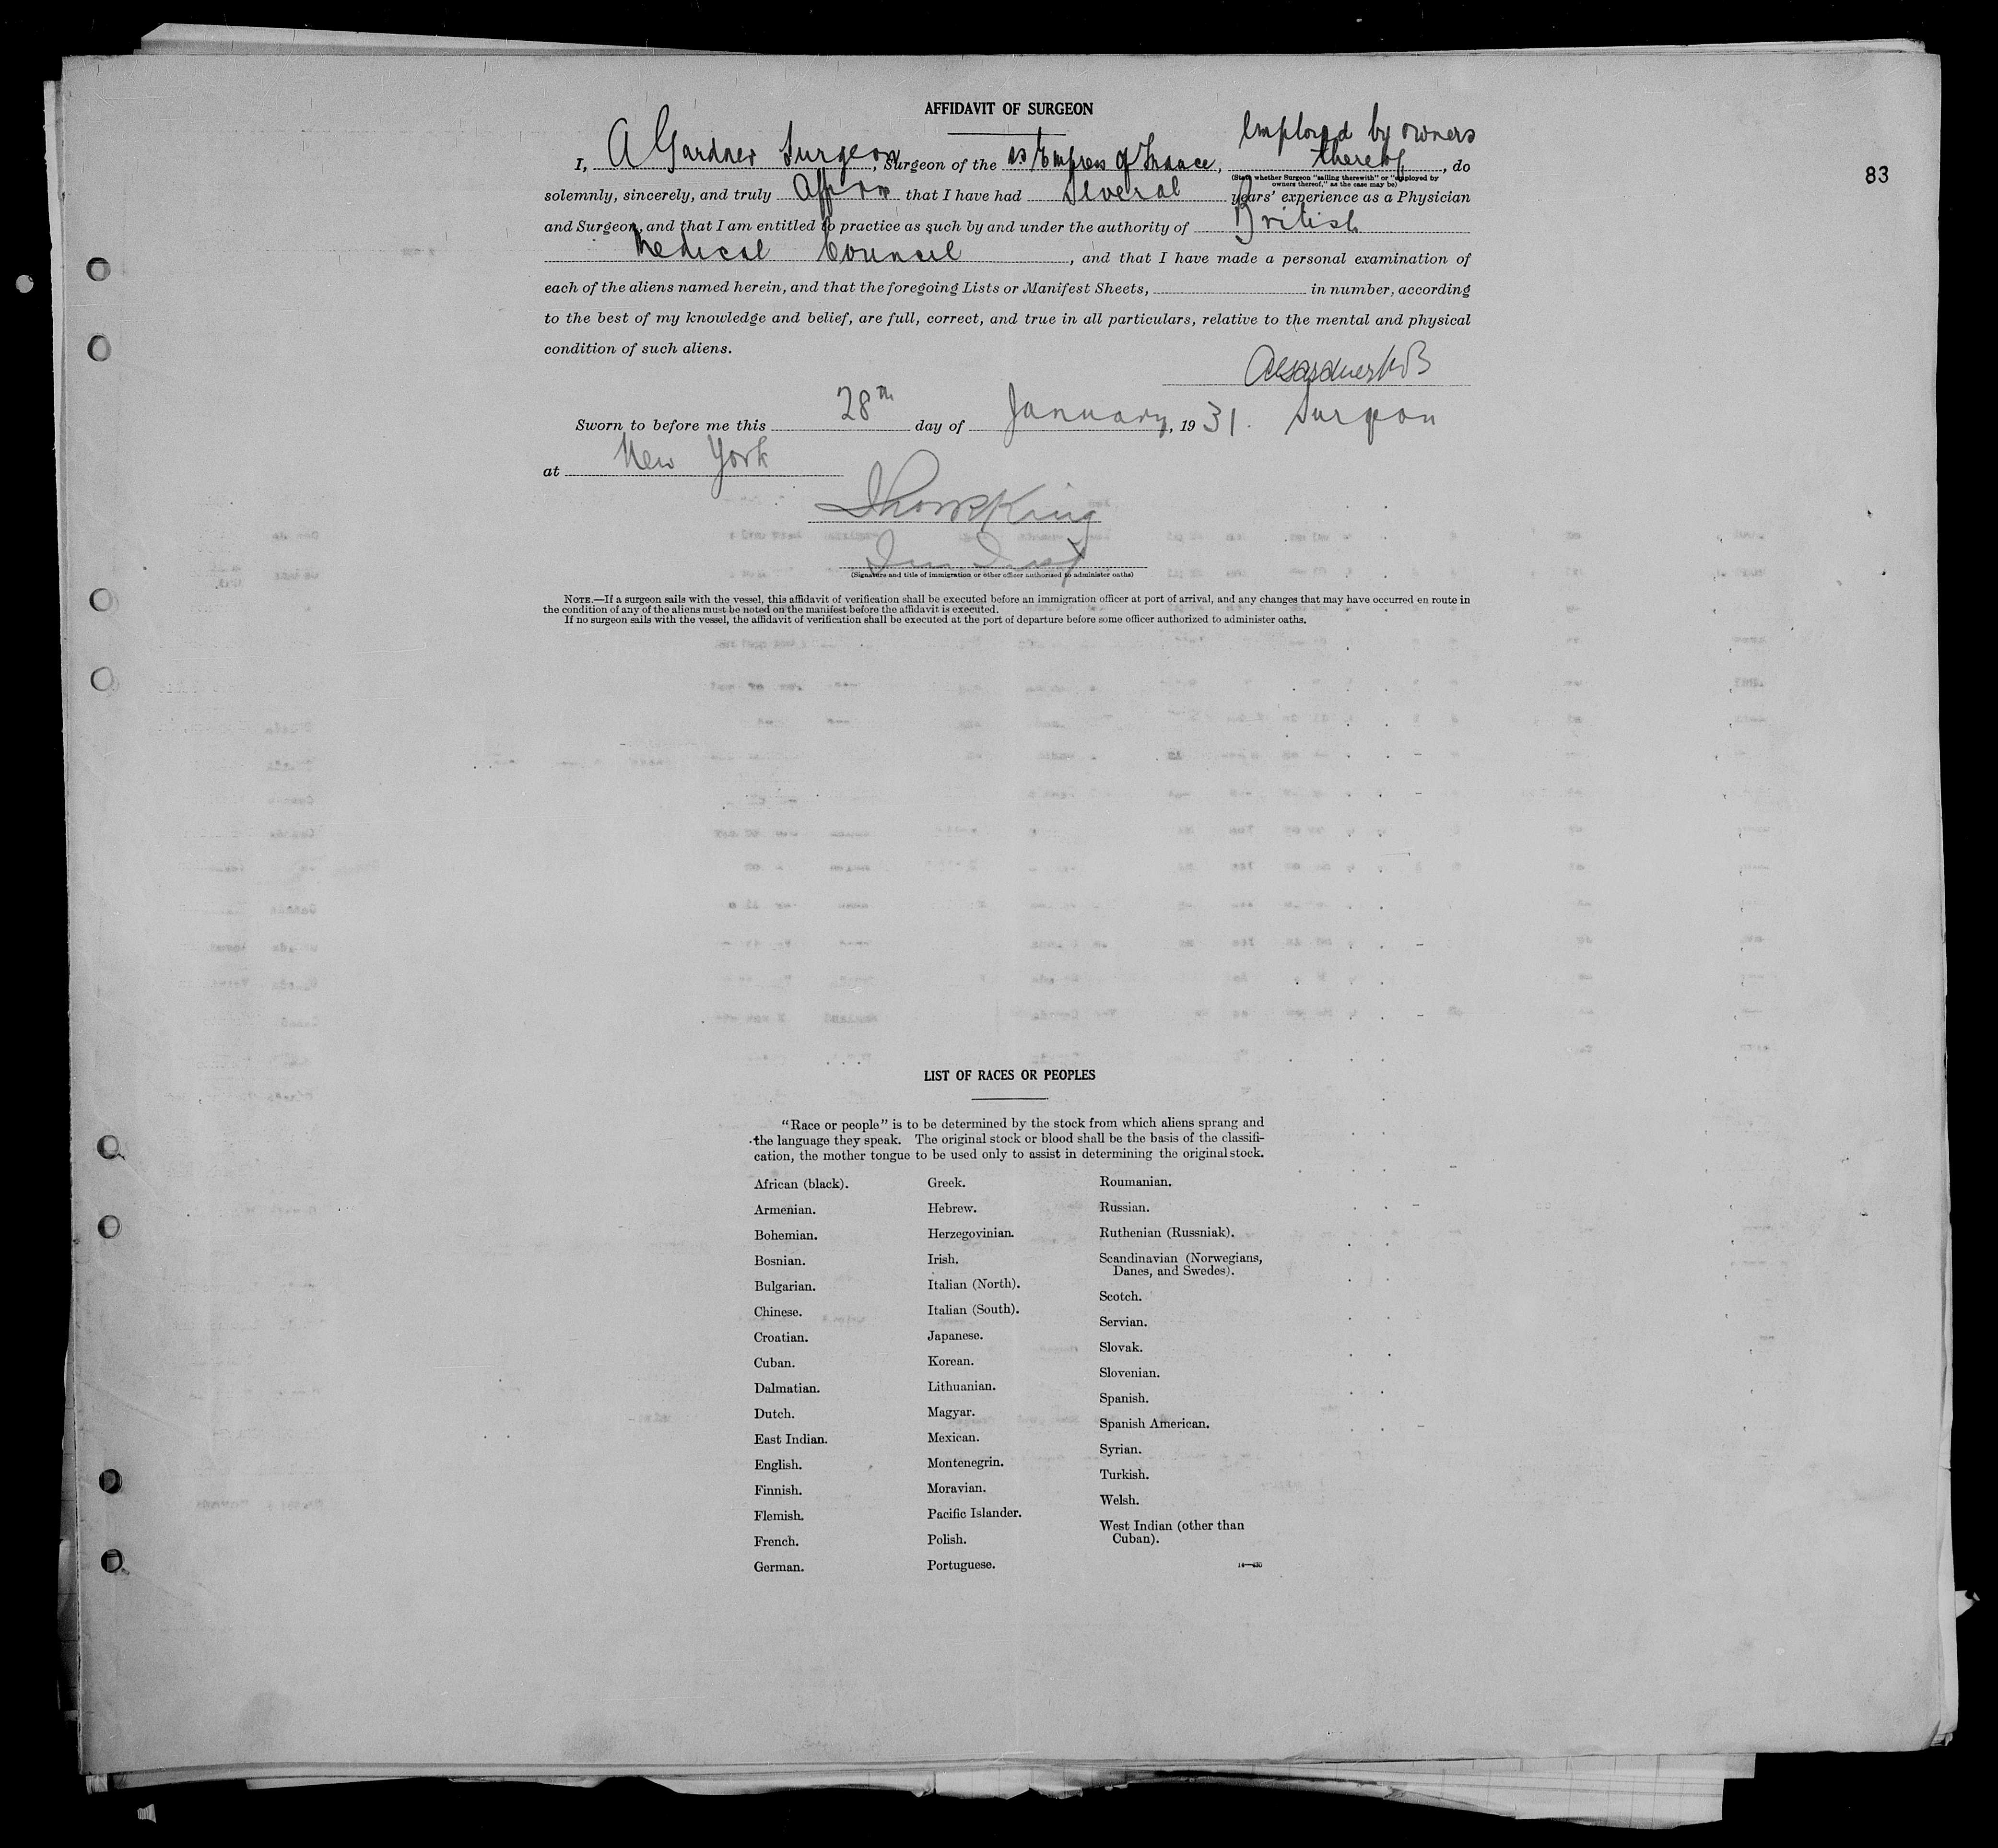 AFFIDAVIT OF SURGEON
83
employed by owners
I, A Gardner Surgeon, Surgeon of the ss Empress of France, thereof, do
(State whether Surgeon "sailing therewith" or "employed by
owners thereof," as the case may be)
solemnly, sincerely, and truly Affirm that I have had Several years' experience as a Physician
and Surgeon, and that I am entitled to practice as such by and under the authority of British
Medical Council, and that I have made a personal examination of
each of the aliens named herein, and that the foregoing Lists or Manifest Sheets, in number, according
to the best of my knowledge and belief, are full, correct, and true in all particulars, relative to the mental and physical
condition of such aliens.
AGardner MB
Sworn to before me this 28th day of January, 1931. Surgeon
at New York
King
(Signature and title of immigration or other officer authorized to administer oaths)
NOTE.—If a surgeon sails with the vessel, this affidavit of verification shall be executed before an immigration officer at port of arrival, and any changes that may have occurred en route in
the condition of any of the aliens must be noted on the manifest before the affidavit is executed.
If no surgeon sails with the vessel, the affidavit of verification shall be executed at the port of departure before some officer authorized to administer oaths.
LIST OF RACES OR PEOPLES
"Race or people" is to be determined by the stock from which aliens sprang and
the language they speak. The original stock or blood shall be the basis of the classifi-
cation, the mother tongue to be used only to assist in determining the original stock.
African (black).
Armenian.
Bohemian.
Bosnian.
Bulgarian.
Chinese.
Croatian.
Cuban.
Dalmatian.
Dutch.
East Indian.
English.
Finnish.
Flemish.
French.
German.
Greek.
Hebrew.
Herzegovinian.
Irish.
Italian (North).
Italian (South).
Japanese.
Korean.
Lithuanian.
Magyar.
Mexican.
Montenegrin.
Moravian.
Pacific Islander.
Polish.
Portuguese.
Roumanian.
Russian.
Ruthenian (Russniak).
Scandinavian (Norwegians,
Danes, and Swedes).
Scotch.
Servian.
Slovak.
Slovenian.
Spanish.
Spanish American.
Syrian.
Turkish.
Welsh.
West Indian (other than
Cuban).